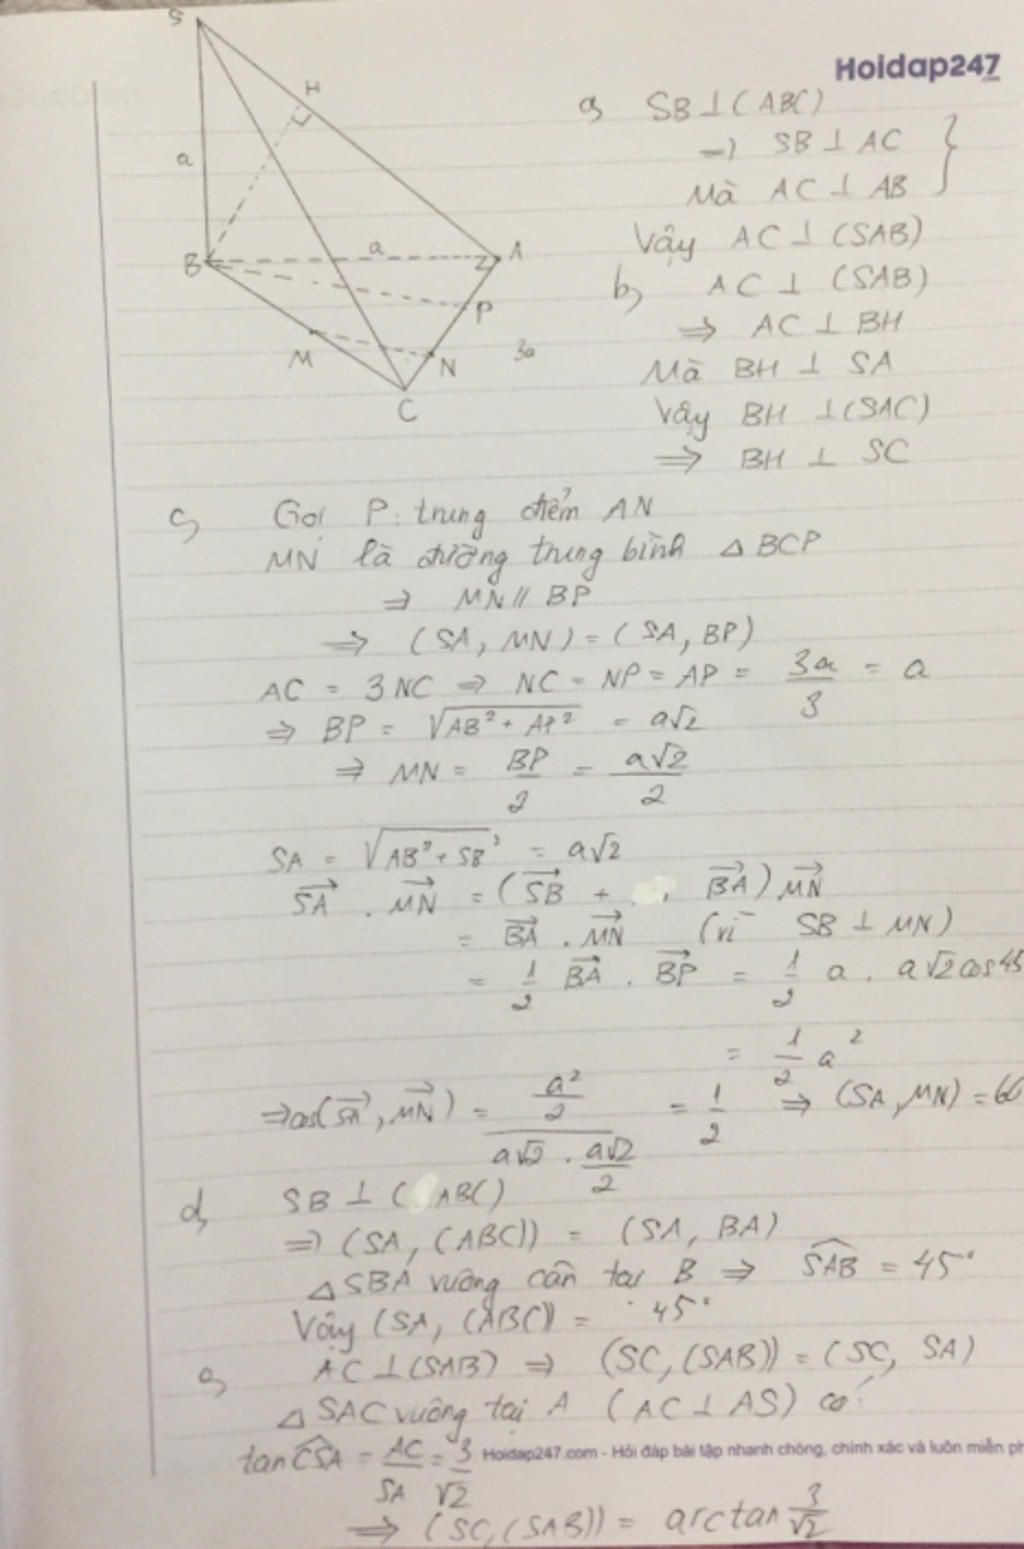 Hoidap247
S
H
a
B
a
A
P
M
N
3a
C
a, SB ⊥ (ABC)
→ SB ⊥ AC
Mà AC ⊥ AB }
Vậy AC ⊥ (SAB)
b, AC ⊥ (SAB)
⇒ AC ⊥ BH
Mà BH ⊥ SA
Vậy BH ⊥ (SAC)
⇒ BH ⊥ SC
c, Gọi P: trung điểm AN
MN là đường trung bình △ BCP
⇒ MN // BP
⇒ (SA, MN) = (SA, BP)
AC = 3NC ⇒ NC = NP = AP = 3a/3 = a
⇒ BP = √(AB² + AP²) = a√2
⇒ MN = BP/2 = a√2/2
SA = √(AB² + SB²) = a√2
SA→ . MN→ = (SB→ + BA→) MN→
= BA→ . MN→ (vì SB ⊥ MN)
= 1/2 BA→ . BP→ = 1/2 a . a√2 cos45
= 1/2 a²
⇒ cos(SA→, MN→) = (a²/2)/(a√2 . a√2/2) = 1/2 ⇒ (SA, MN) = 60
d, SB ⊥ (ABC)
⇒ (SA, (ABC)) = (SA, BA)
△SBA vuông cân tại B ⇒ SAB̂ = 45°
Vậy (SA, (ABC)) = 45°
e, AC ⊥ (SAB) ⇒ (SC, (SAB)) = (SC, SA)
△ SAC vuông tại A (AC ⊥ AS) có:
tan CSÂ = AC/SA = 3/√2
Hoidap247.com - Hỏi đáp bài tập nhanh chóng, chính xác và luôn miễn ph
⇒ (SC, (SAB)) = arctan 3/√2